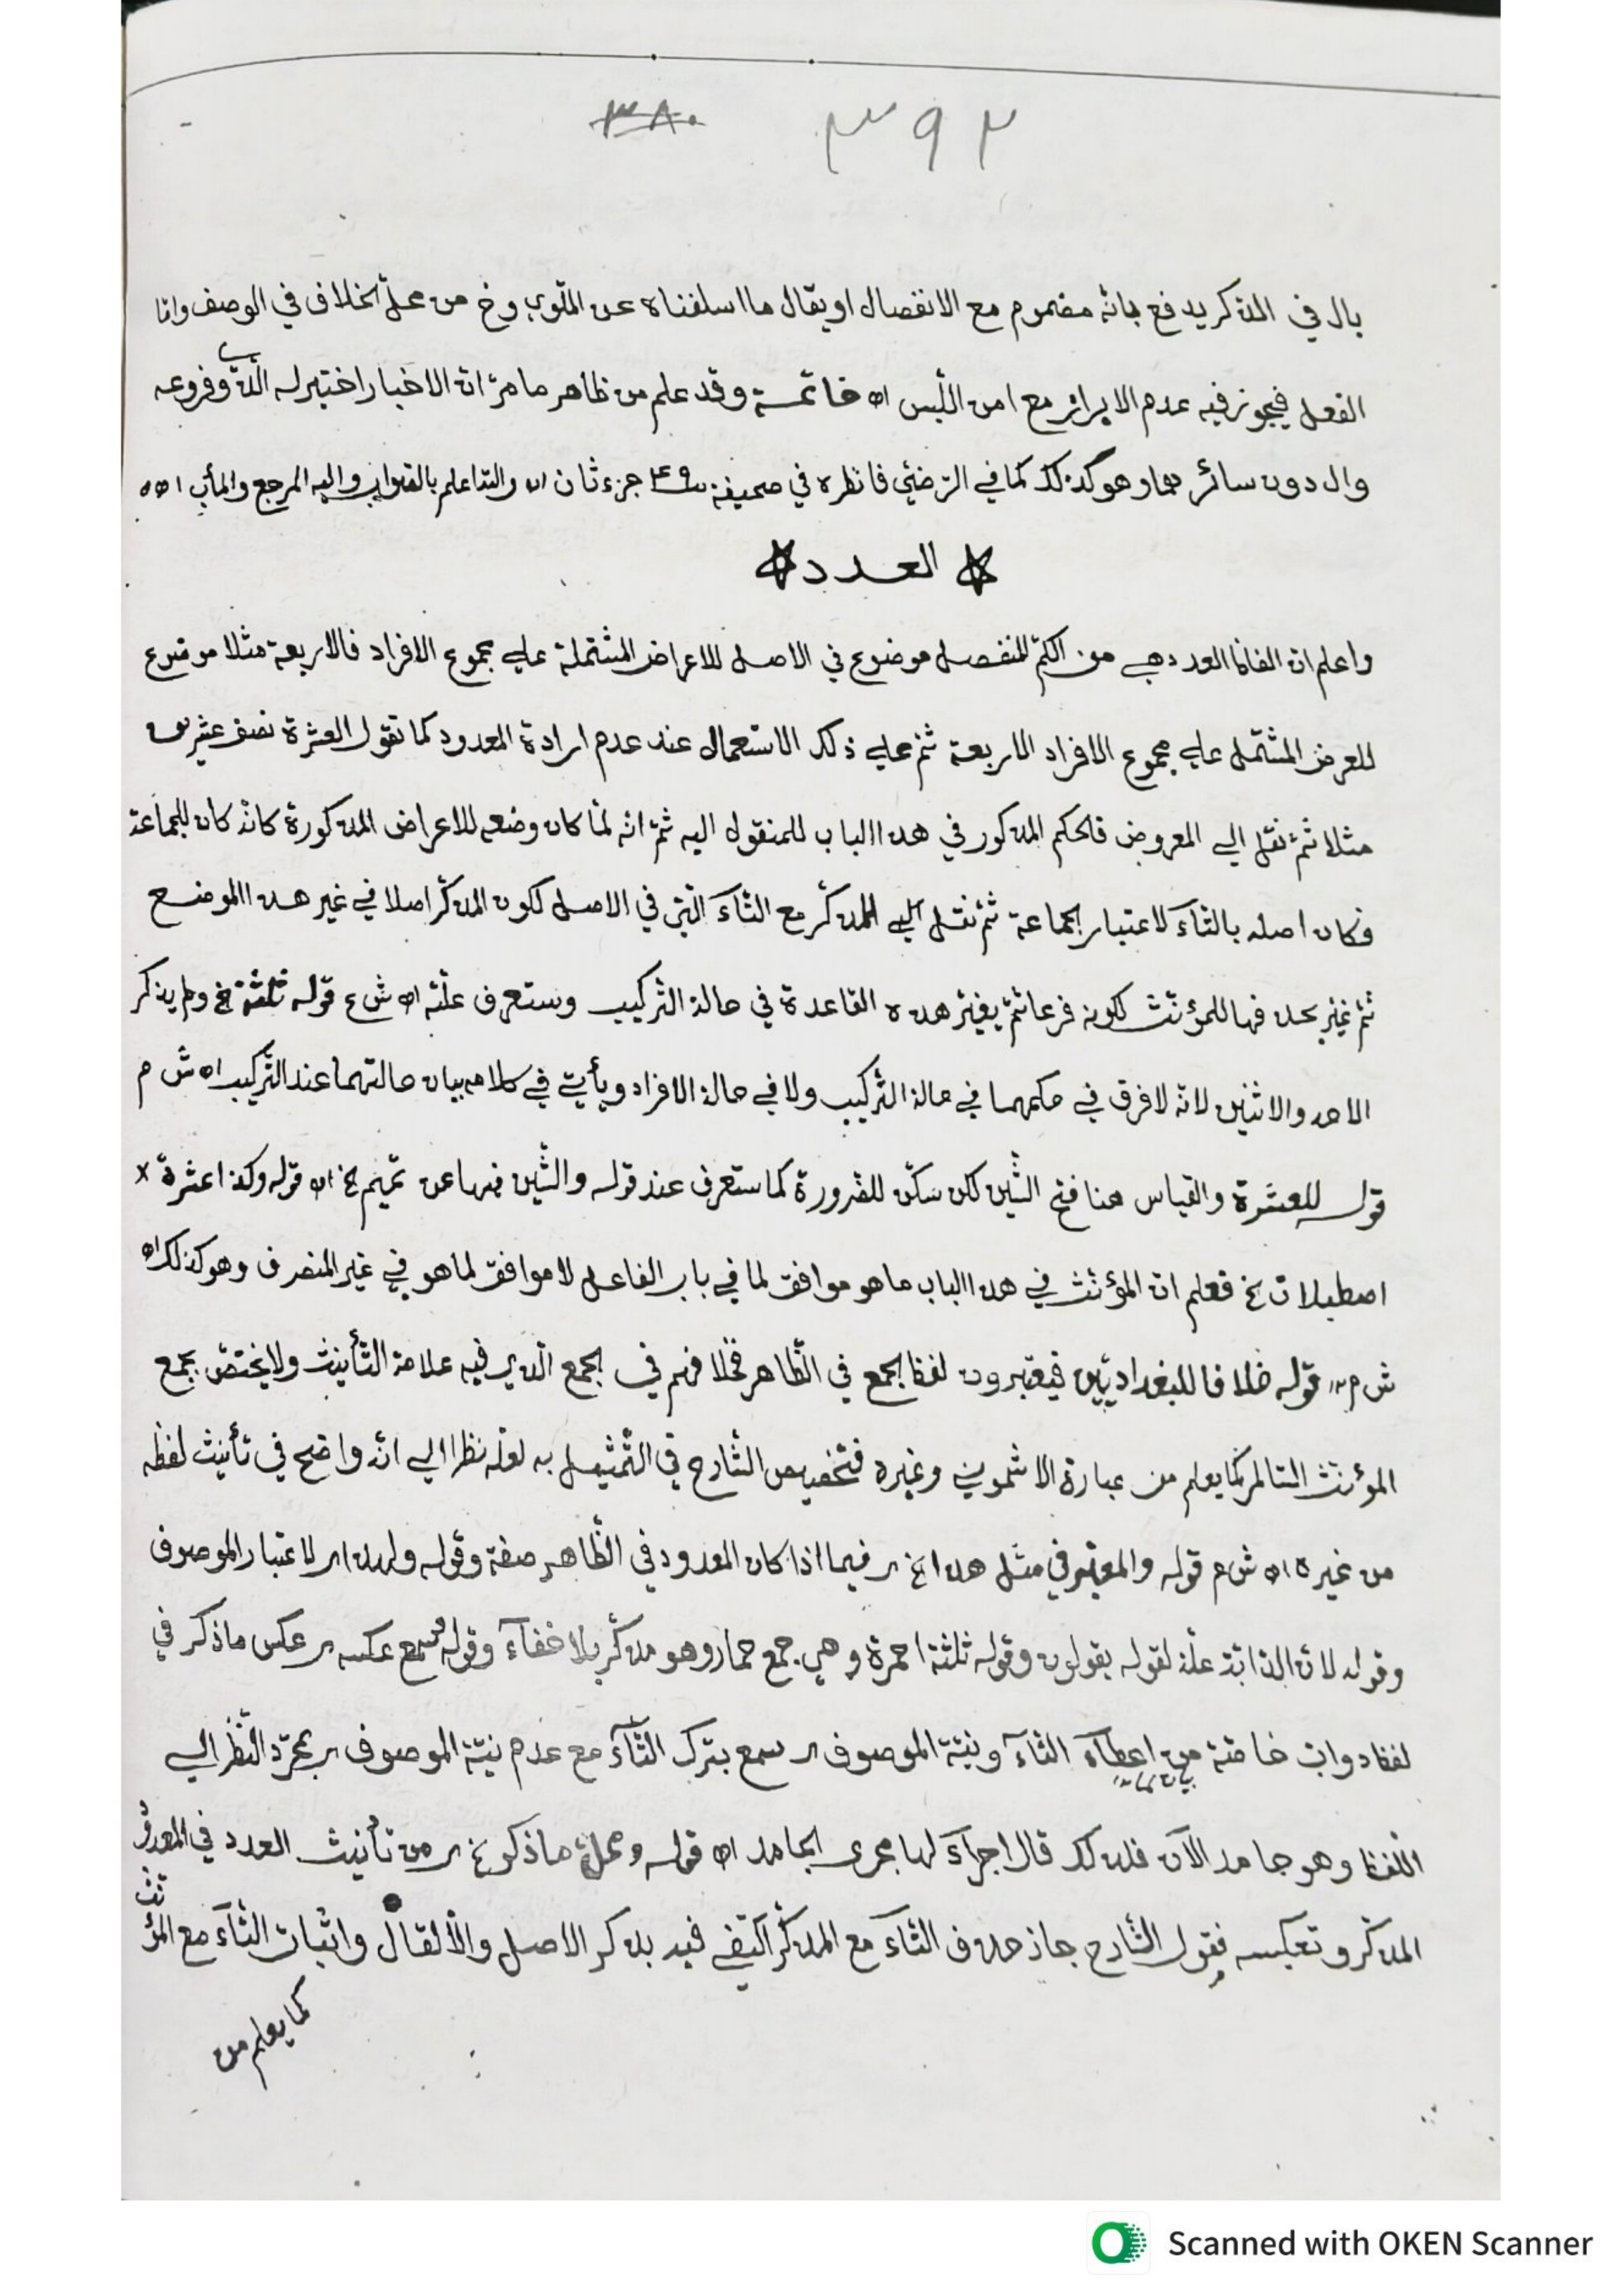 ٣٨٠ ٣٩٢
بال في المذكر يدفع بانه مضموم مع الانفصال او يقال ما اسلفناه عن الملوي وخ من محل الخلاف في الوصف واما
الفعل فيجوز فيه عدم الابراز مع امن اللبس اه خاتمــة وقد علم من ظاهر ما مرّ ان الاخبار اختير له الذي وفروعه
وال دون سائر هما وهو كذلك كما في الرضيّ فانظره في صحيفة ٤٩ جزء ثان اه والله اعلم بالصواب واليه المرجع والمأب اه
العـــدد
واعلم ان الفاظ العدد هي من الكمّ المنفصل موضوع في الاصل للاعراض المشتملة علي مجموع الافراد فالاربعة مثلا موضوع
للعرض المشتمل علي مجموع الافراد الاربعة ثم علي ذلك الاستعمال عند عدم ارادة المعدود كما تقول العشرة نصف عشرين
مثلا ثمّ نقل الي المعروض فالحكم المذكور في هذا الباب للمنقول اليه ثمّ انه لمّا كان وضعه للاعراض المذكورة كانه كان للجماعة
فكان اصله بالتاء لاعتبار الجماعة ثمّ نقل الي المذكّر مع التاء التي في الاصل لكون المذكّر اصلا في غير هذا الموضع
ثمّ غيّر بحذفها للمؤنّث لكونه فرعا ثمّ يغيّر هذه القاعدة في حالة التركيب وستعرف علّته اه ش ع قوله ثلثة خ ولم يذكر
الاحد والاثنين لانه لا فرق في حكمهما في حالة التركيب ولا في حالة الافراد ويأتي في كلامه بيان حالتهما عند التركيب اه ش م
قوله للعشرة والقياس هنا فتح الشين لكن سكّن للضرورة كما ستعرف عند قوله والشين فيها عن تميم خ اه قوله وكذا عشرة
اصطبلات خ فعلم ان المؤنّث في هذا الباب ما هو موافق لما في باب الفاعل لا موافق لما هو في غير المنصرف وهو كذلك اه
ش م قوله خلافا للبغداديّين فيعتبرون لفظ الجمع في الظاهر فخلافهم في الجمع الذي فيه علامة التأنيث ولا يختصّ بجمع
المؤنث السالم كما يعلم من عبارة الاشموني وغيره فتخصيص الشارح في التّمثيل به لعله نظرا الي انه واضح في تأنيث لفظه
من غيره اه ش م قوله والمعتبر في مثل هذا خ ير فيما اذا كان المعدود في الظاهر صفة وقوله ولهذا ير لاعتبار الموصوف
وقوله لان الدابة علّة لقوله يقولون وقوله ثلثة احمرة وهي جمع حمار وهو مذكّر بلا خفاء وقوله سمع عكسه ير عكس ما ذكر في
لفظ دواب خاصّة من اعطاء التاء ونيّة الموصوف ير سمع بترك التاء مع عدم نيّة الموصوف ير بمجرّد النّظر الي
بيان لما
اللفظ وهو جامد الآن فلذلك قال اجراء لها مجرى الجامد اه قوله ومحل ما ذكر خ ير من تأنيث العدد في المعدود
المذكّر وتعكسه فقول الشارح جاز حذف التاء مع المذكّر اكتفي فيه بذكر الاصل والّا لقال واثبات التاء مع المؤنث
كما يعلم من
Scanned with OKEN Scanner